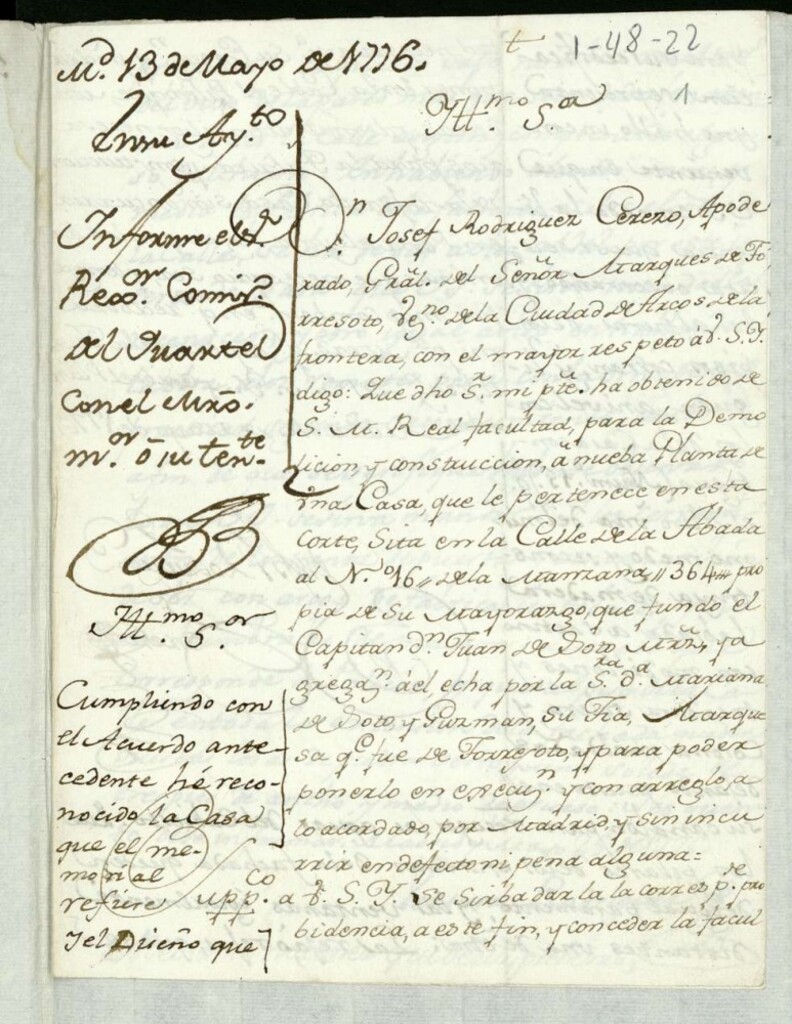 1-48-22
1
Md. 13 de Mayo de 1776.
En su Ay.to
Informe el Sr.
Regor. Comisº.
del Quartel
con el Mrō.
m.or ō su ten.te
Ill.mo S.or
Cumpliendo con
el Acuerdo ante-
cedente hé reco-
nocido la Casa
que el me-
morial
refiere
y el Dueño que
Ill.mo S.or
D.n Josef Rodriguez Cerezo, Apode
rado, Grāl. del Señor Marques de To
rresoto, vez.no de la Ciudad de Arcos de la
frontera, con el mayor respeto á V. S. I.
digo: Que dho Sr. mi pte. ha obtenido de
S. M. Real facultad, para la Demo
licion, y construccion, á nueba Planta de
vna Casa, que le pertenece en esta
Corte, Sita en la Calle de la Abada
al N.º 16,, de la Manzana,, 364,, pro
pia de su Mayorazgo, que fundo el
Capitan d.n Juan de Soto Mrñ,, y a
gregaz.n á el echa por la S.ra d.a Mariana
de Soto, y Guzman, su Tia, Marque
sa q.e fue de Torresoto, y para poder
ponerlo en execuz.n y con arreglo, a
lo acordado, por Madrid y sin incu
rrir en defecto ni pena alguna=
Supp.co a V. S. I. se sirba dar la la corresp.de pro
bidencia, a este fin, y conceder la facul